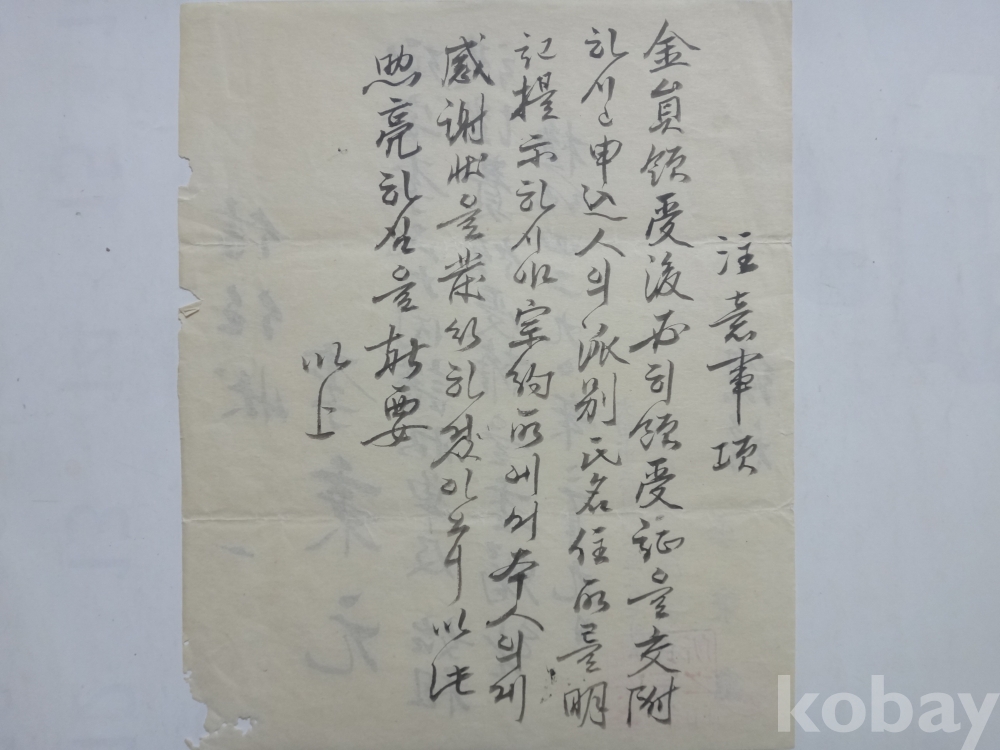 注意事項
金員領受後必히領受証을交附
하시고申込人의派別氏名住所를明
記提示하시야宗約所에서本人의게
感謝狀을業呈하겠아오니以此
照亮하심을敬要
以上
kobay